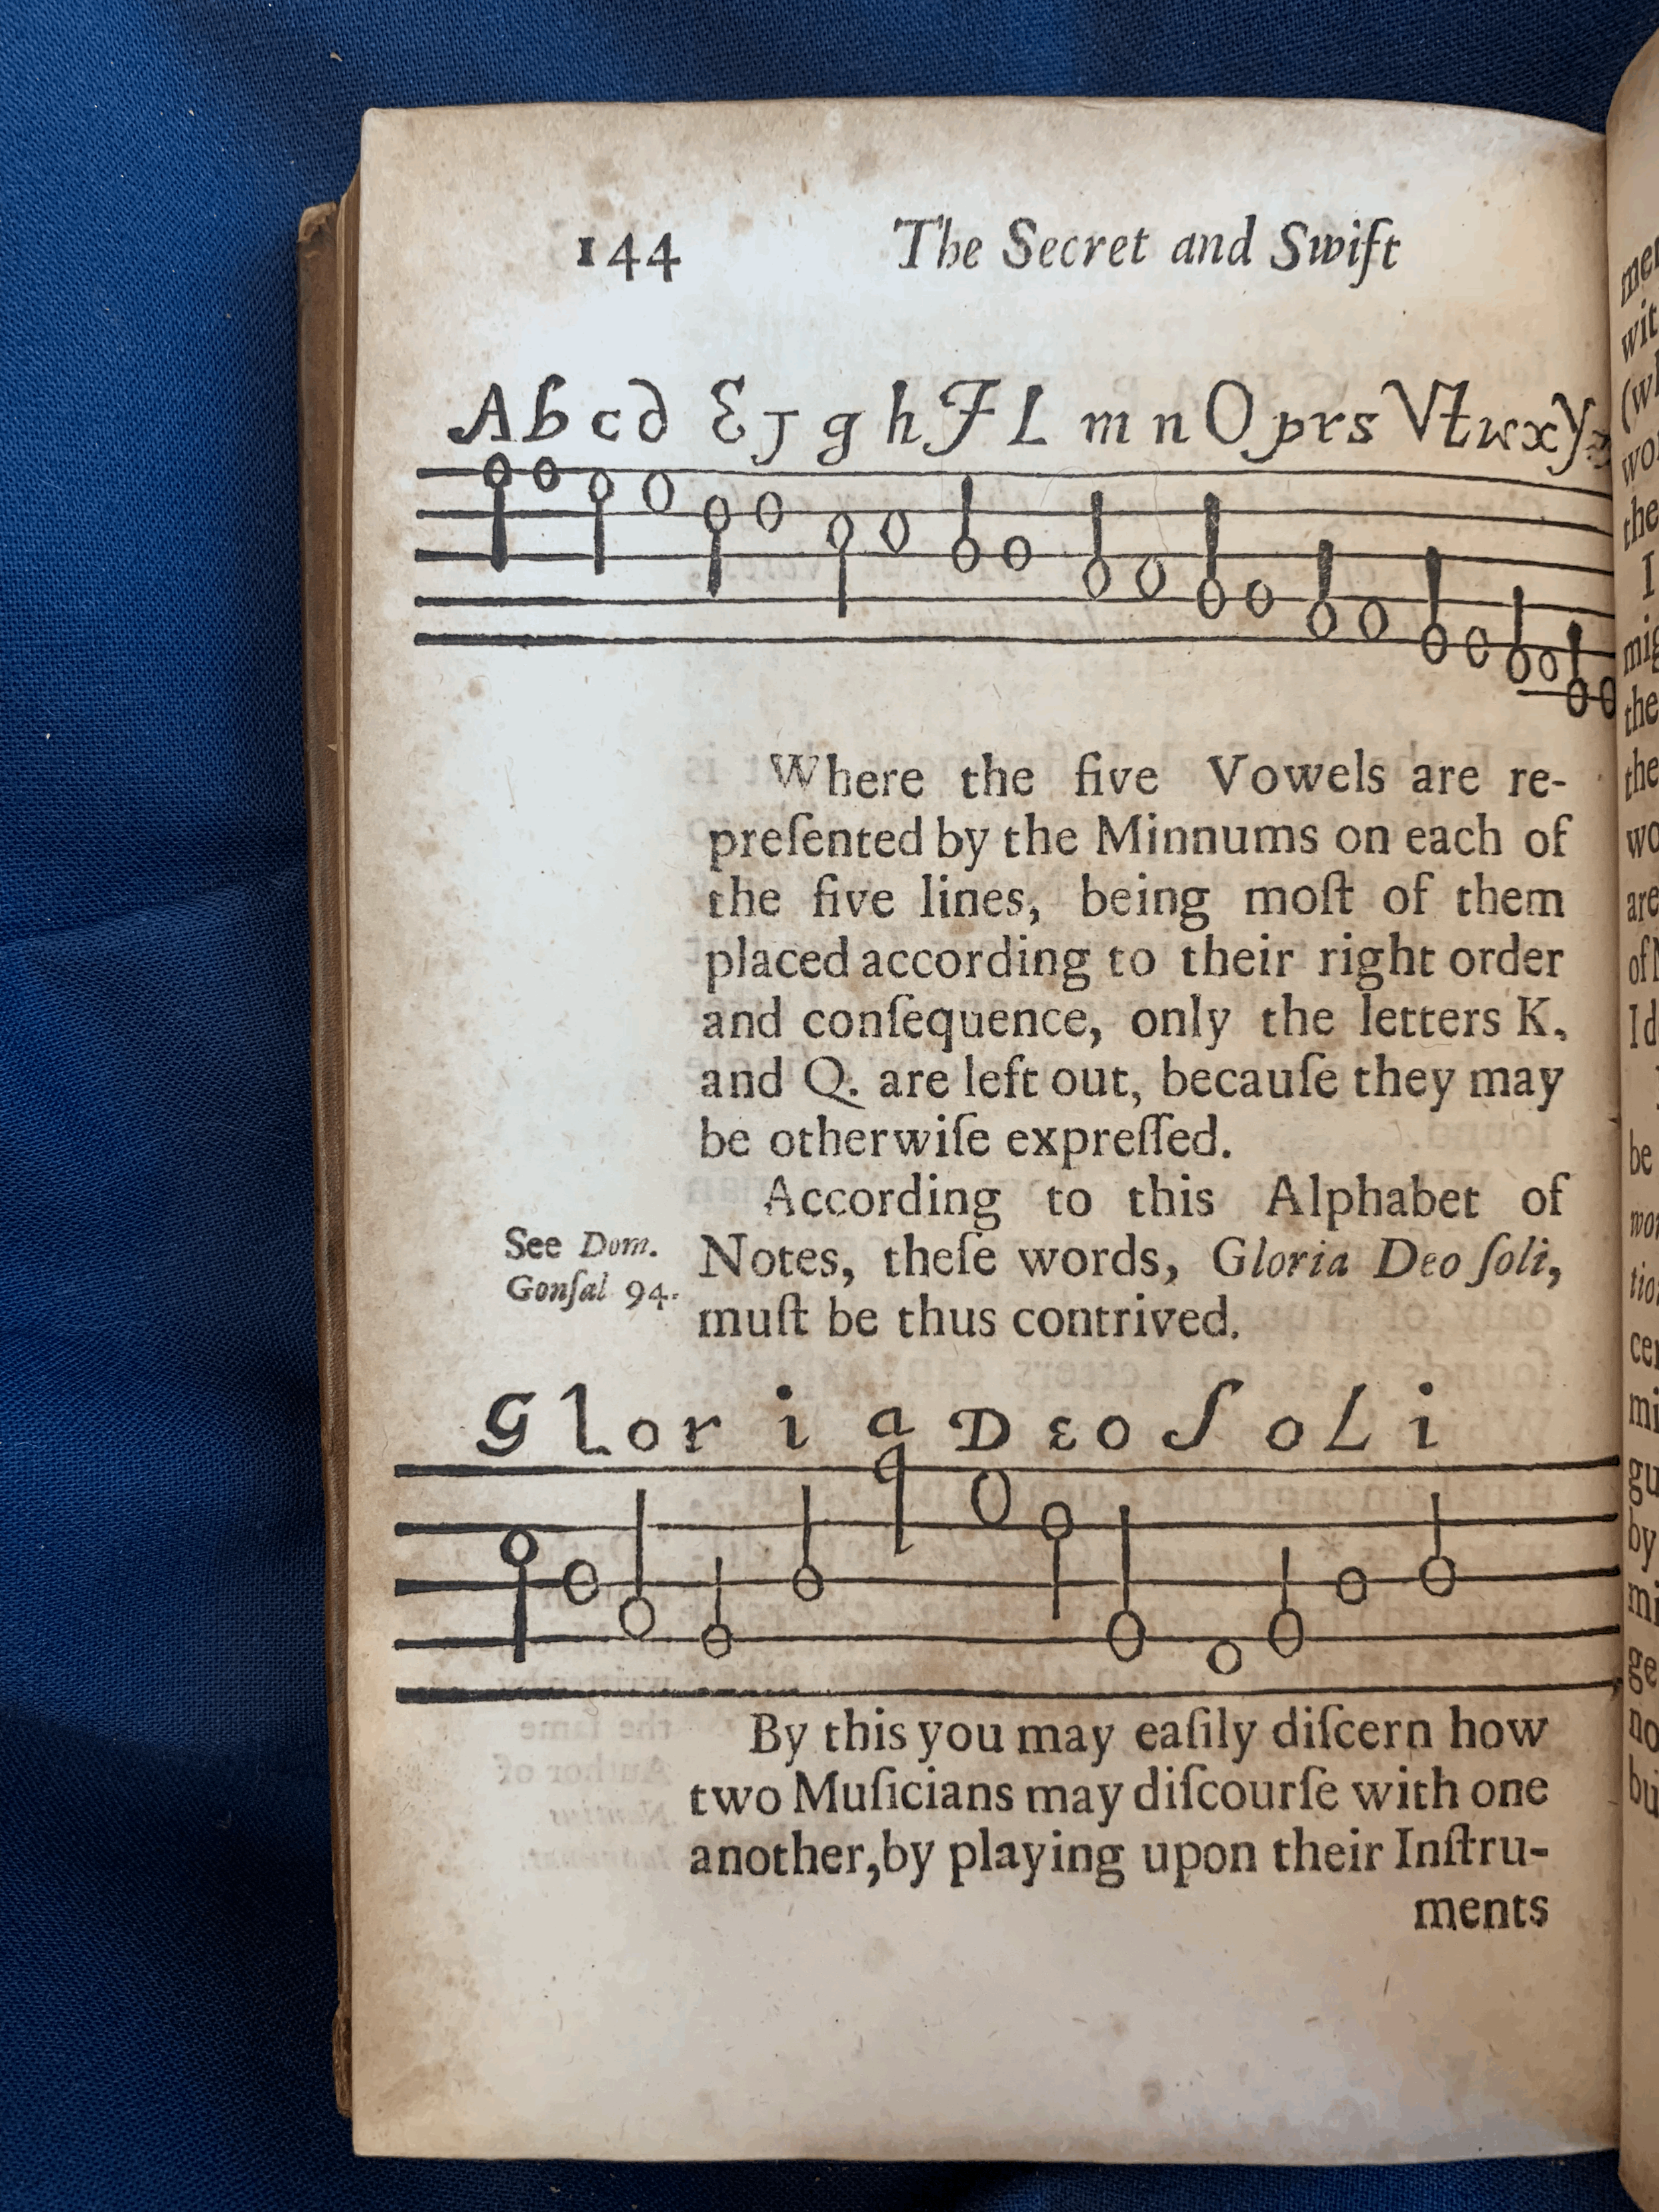 144 The Secret and Swift
A b c d E J g h F L m n O p r s V t w x y z
Where the five Vowels are re-
preſented by the Minnums on each of
the five lines, being moſt of them
placed according to their right order
and conſequence, only the letters K.
and Q. are left out, becauſe they may
be otherwiſe expreſſed.
According to this Alphabet of
See Dom.
Gonſal 94.
Notes, theſe words, Gloria Deo ſoli,
muſt be thus contrived.
G l o r i a D E o S o L i
By this you may eaſily diſcern how
two Muſicians may diſcourſe with one
another, by playing upon their Inſtru-
ments